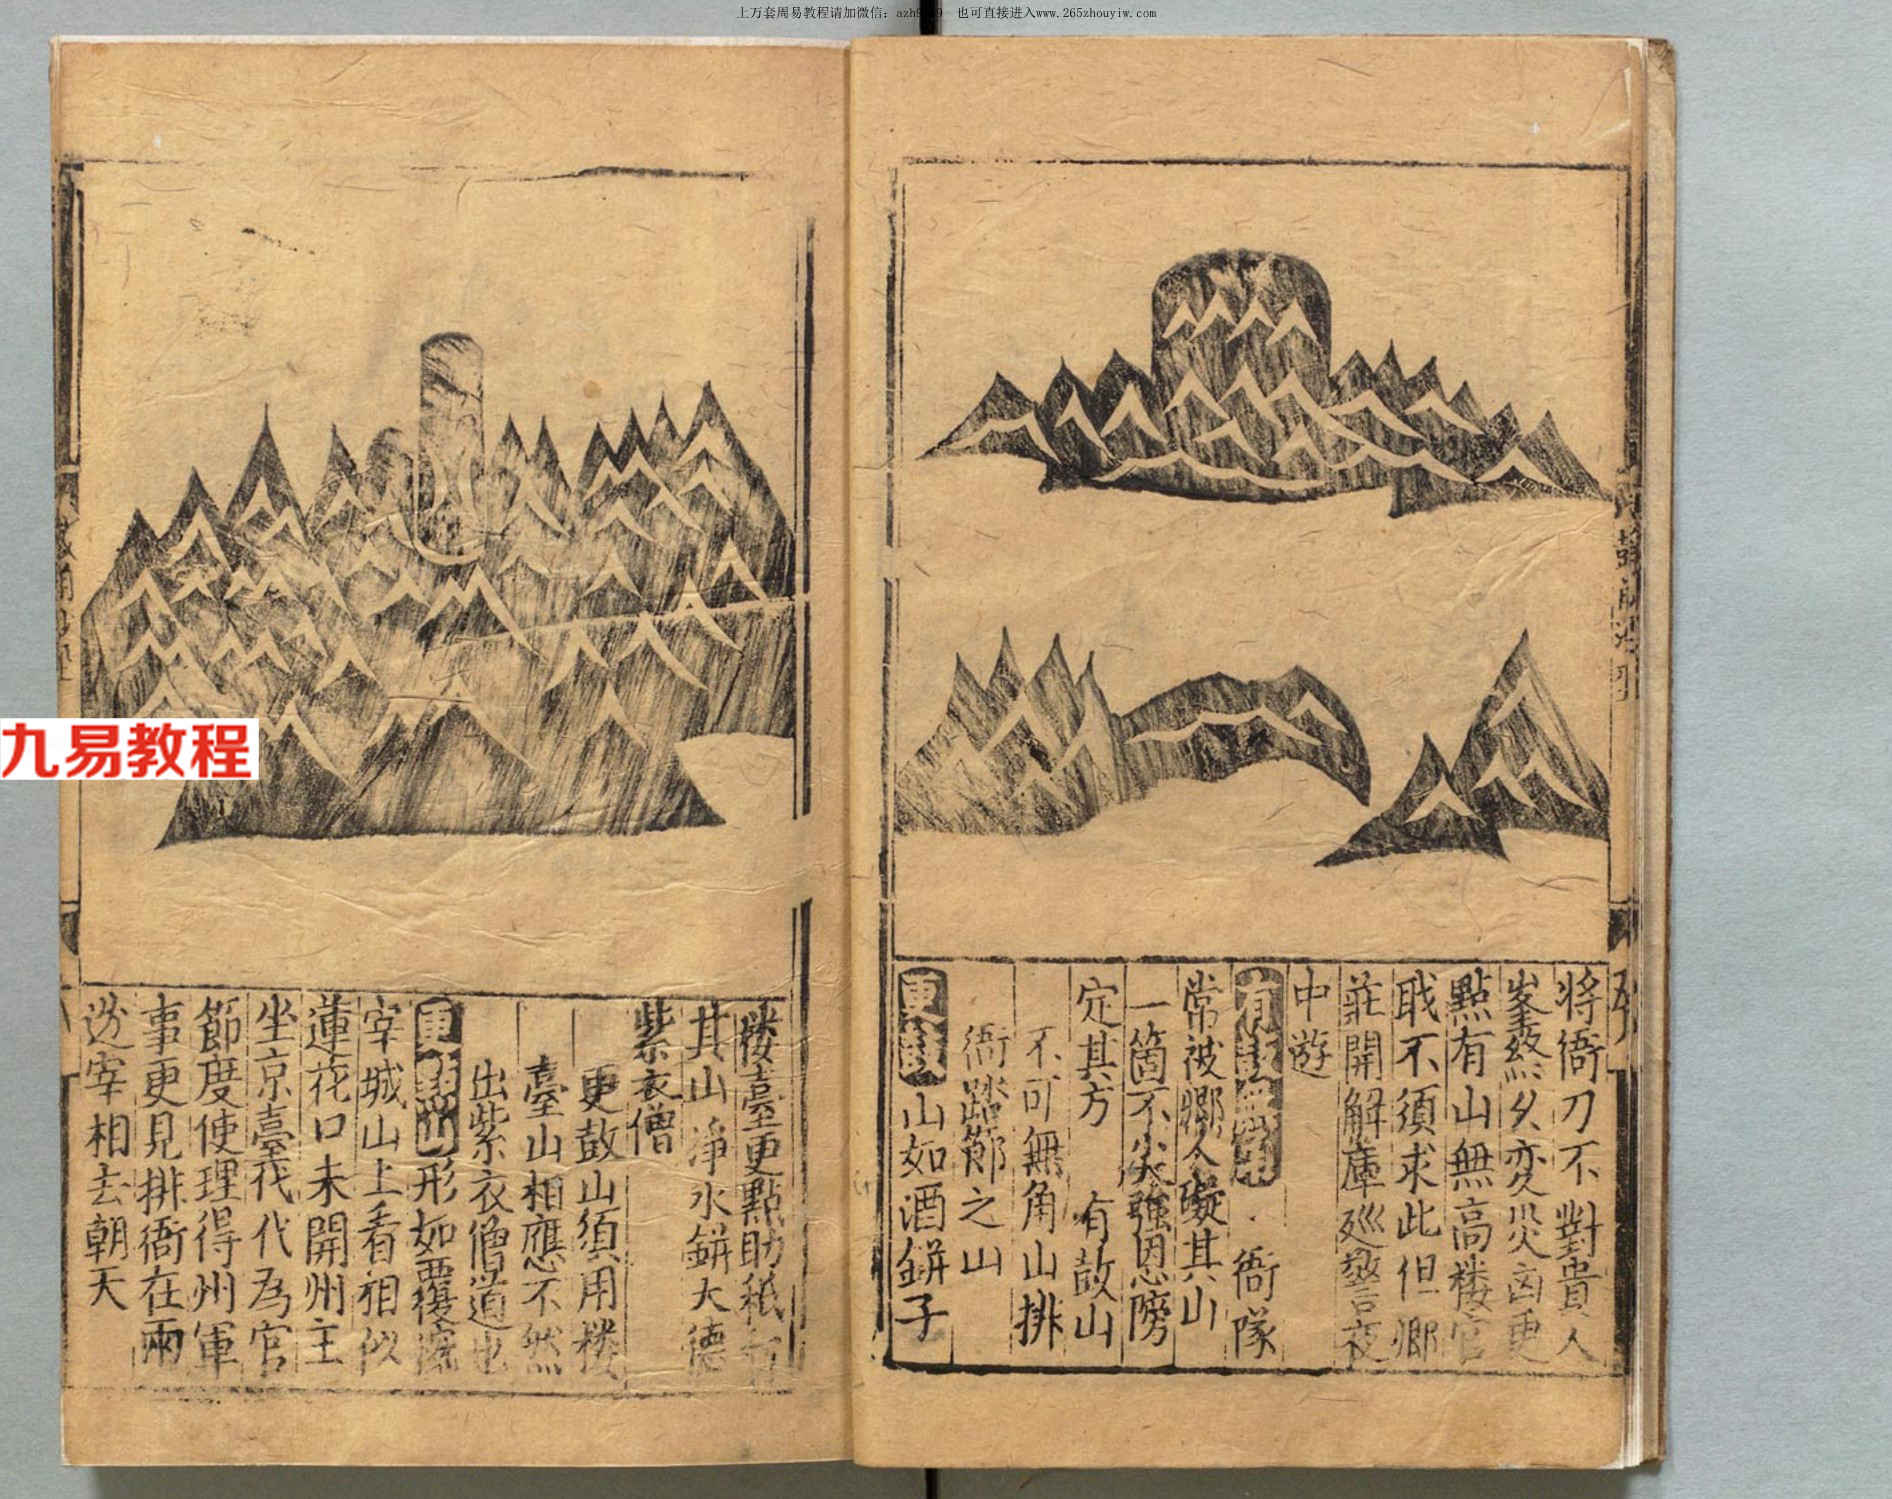 上万套周易教程请加微信：azh 也可直接进入www.265zhouyiw.com
将衙刀不對貴人
峯終久変災凶更
點有山無高楼官
職不須求此但鄉
莊開解庫廵警夜
中遊
衙隊
常被鄉人礙其山
一箇不尖強恩勝
定其方 有鼓山
不可無角山排
衙踏節之山
山如酒鉼子
楼臺更點助祇
其山淨水鉼大德
紫衣僧
更鼓山須用楼
臺山相應不然
出紫衣僧道也
形如覆
宰城山上看相似
蓮花口未開州主
坐京臺代代為官
節度使理得州軍
事更見排衙在兩
邊宰相去朝天
九易教程